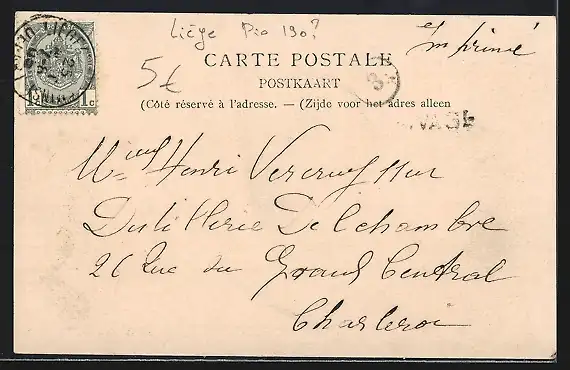 Liége Pio 190?
Imprimé
CARTE POSTALE
5€
POSTKAART
3
(Côté réservé à l'adresse. — (Zijde voor het adres alleen
1c 1c
Henri Vercruysse
Distillerie Delchambre
26 Rue du Grand Central
Charleroi